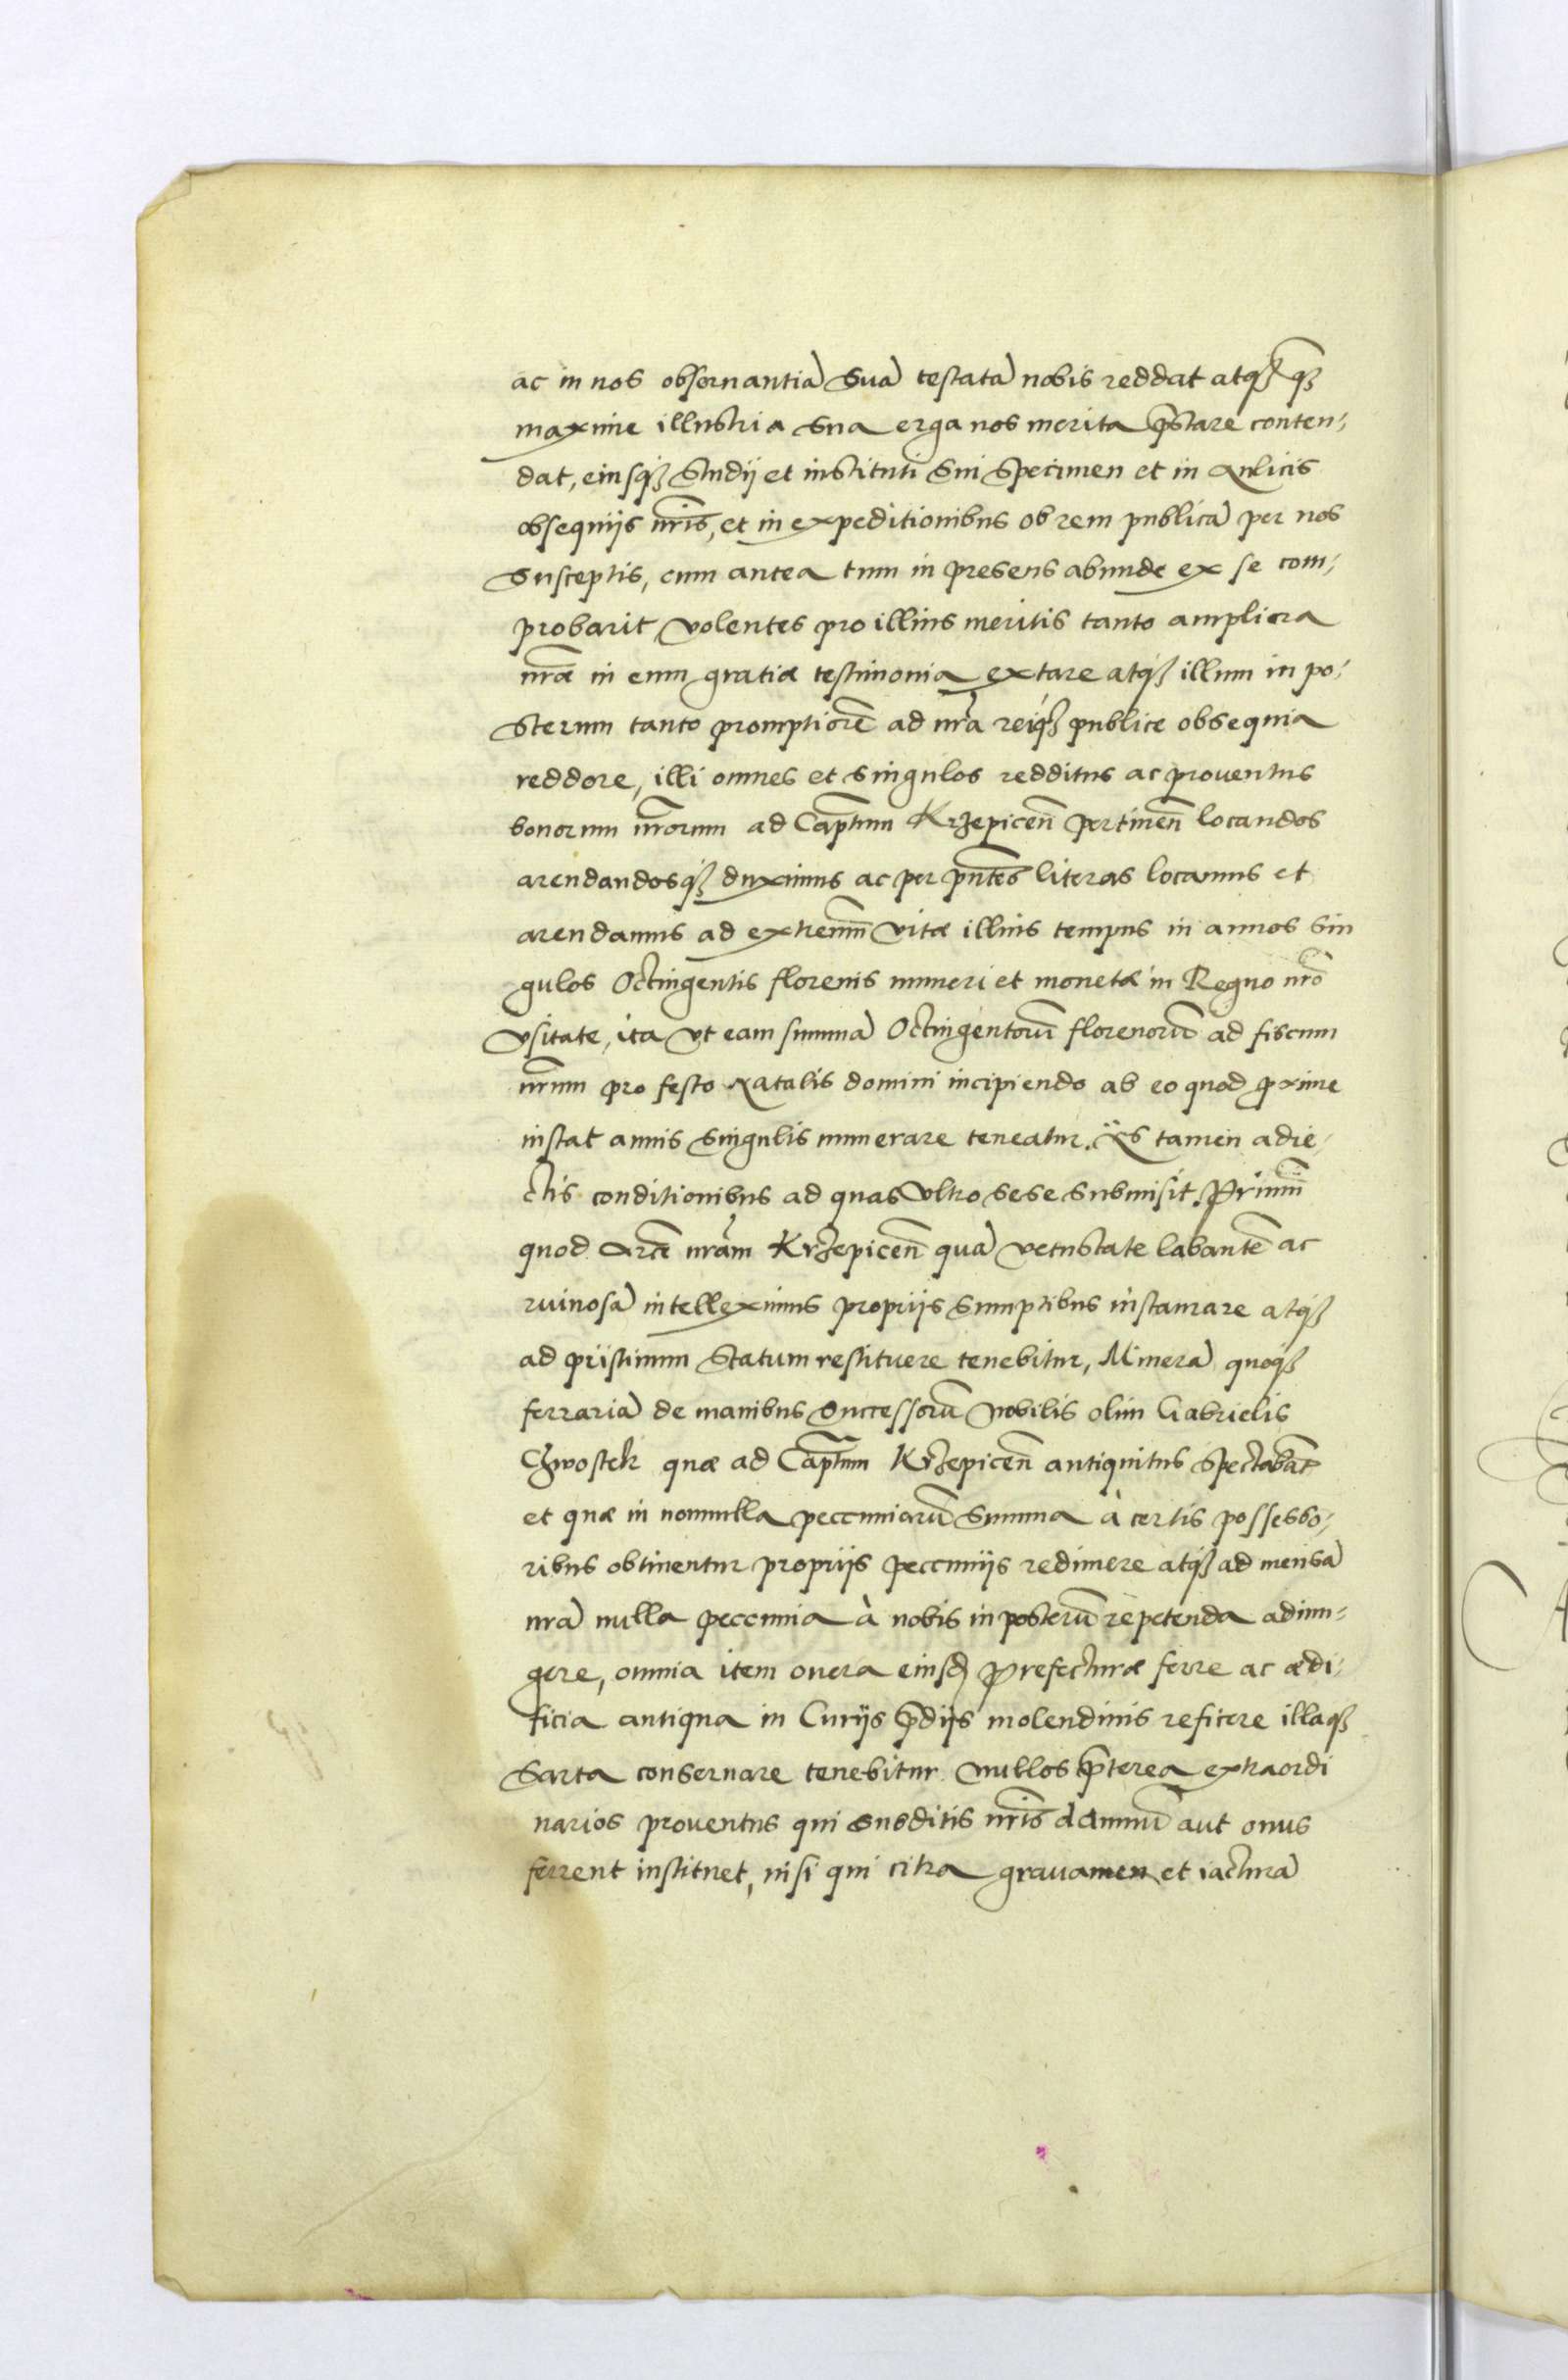 ac in nos obseruantiā suā testatā nobis reddat atq̃ q̃
maxime illustria sua erga nos merita p̄stare conten-
dat, eiusq̃ studij et instituti sui specimen et in Aulicis
obsequijs nr̄is, et in expeditionibus ob rem publicā per nos
susceptis, cum antea tum in presens abunde ex se com-
probarit, volentes pro illius meritis tanto ampliora
nr̄æ in eum gratiæ testimonia extare atq̃ illum in po-
sterum tanto promptiorē ad nr̄a reiq̃ publice obsequia
reddere, illi omnes et singulos redditus ac prouentus
bonorum nr̄orum ad Cap̄tum Krzepiceñ pertineñ locandos
arendandosq̃ duximus ac per pn̄tes literas locamus et
arendamus ad extremū vitæ illius tempus in annos sin
gulos Octingentis florenis numeri et monetæ in Regno nr̄o
vsitate, ita vt eam summā Octingentorū florenorū ad fiscum
nr̄um pro festo Natalis domini incipiendo ab eo quod proxime
instat annis singulis numerare teneatur. Ijs tamen adie-
ctis conditionibus ad quas vltro sese submisit. Primū
quod Arcē nr̄am Krzepiceñ quā vetustate labantē ac
ruinosā intelleximus proprijs sumptibus instaurare atq̃
ad pristinum statum restituere tenebitur, Minerā quoq̃
ferrariā de manibus successorū nobilis olim Gabrielis
Chwostek quæ ad Cap̄tum Krzepiceñ antiquitus spectabāt
et quæ in nonnulla pecuniarū summa à certis possesso-
ribus obtinentur proprijs pecunijs redimere atq̃ ad mensā
nr̄ā nulla pecunia à nobis in posterū repetenda adiun-
gere, omnia item onera eiusd̄ Prefecturæ ferre ac ædi-
ficia antiqua in Curijs p̄dijs molendinis reficere illaq̃
sarta conseruare tenebitur. Nullos p̄terea extraordi
narios prouentus qui subditis nr̄is damnū aut onus
ferrent instituet, nisi qui citra grauamen et iacturā